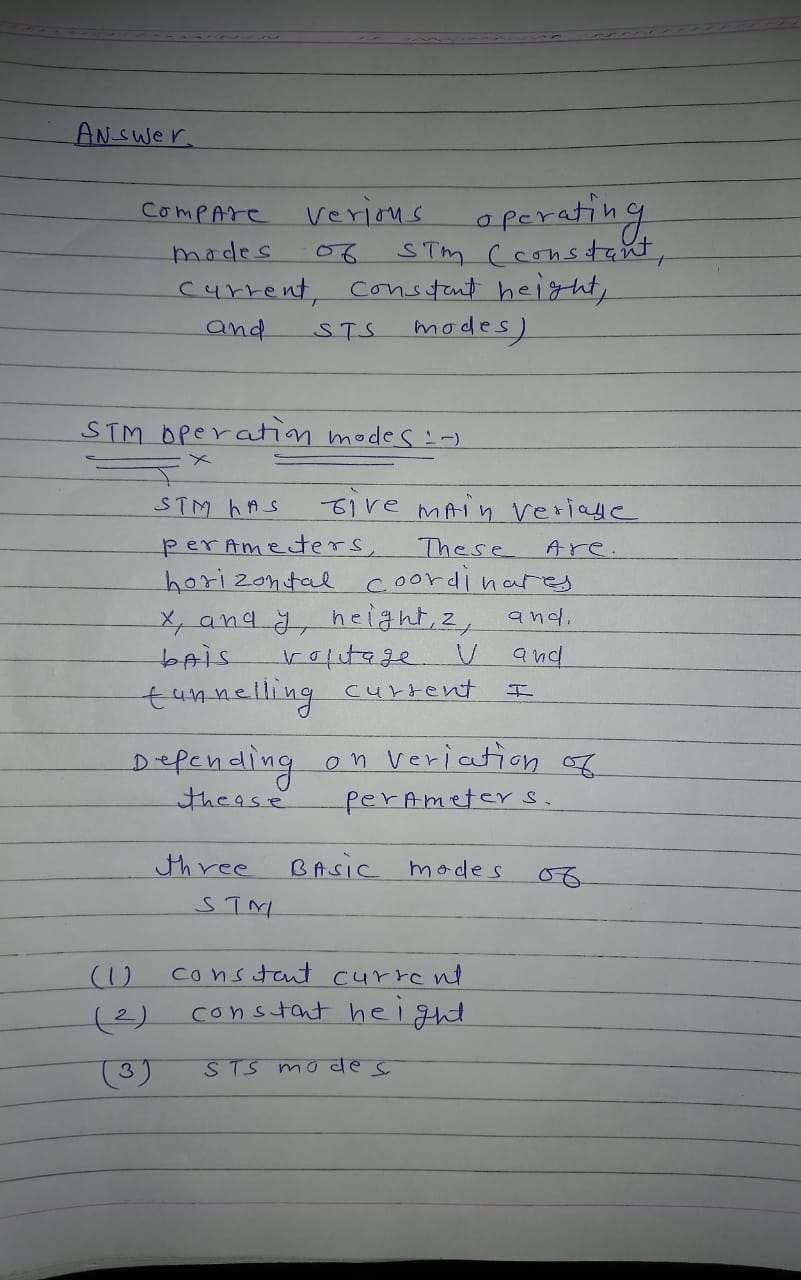 Answer.
Compare verious operating
modes of STM (constant,
current, constant height,
and STS modes)
STM operation modes :-)
STM has five main veriable
perameeters, These Are.
horizontal coordinates
x, and y, height, z, and.
bais voltage V and
tunnelling current I
Depending on veriation of
thease perameters.
three Basic modes of
STM
(1) constant current
(2) constant height
(3) STS modes